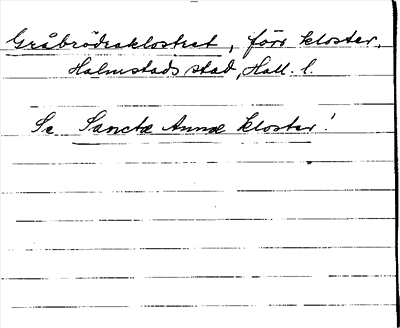 Gråbrödraklostret, förr kloster,
Halmstads stad, Hall. l.
Se Sanctæ Annæ kloster!